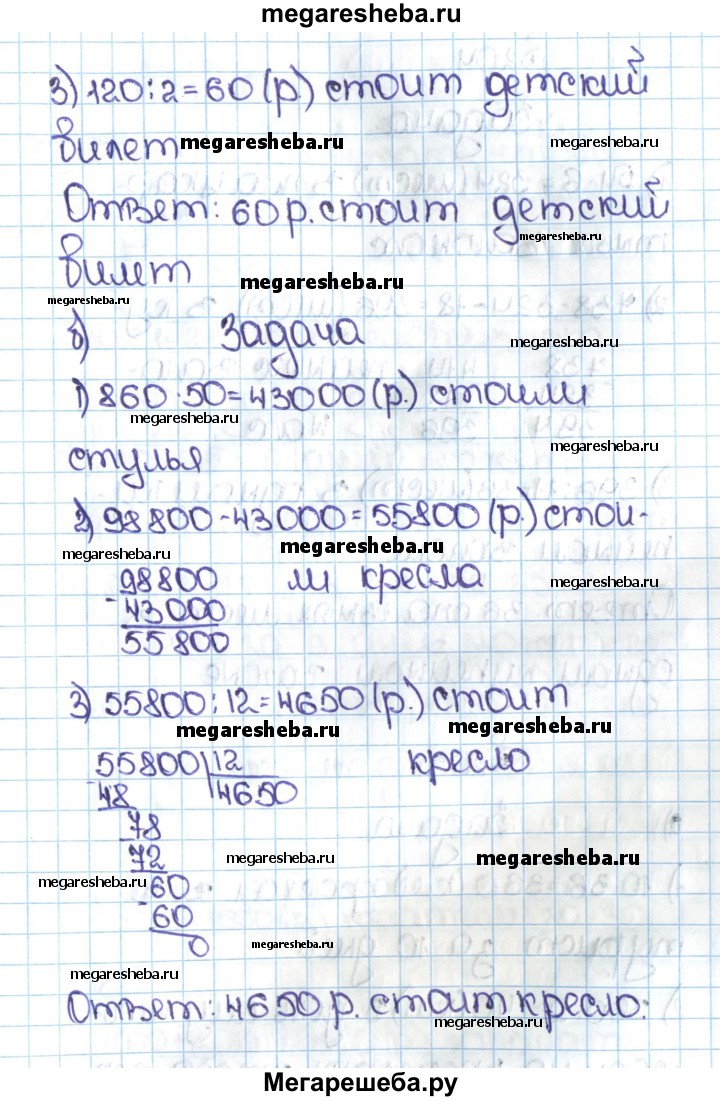 megaresheba.ru
3) 120:2=60 (р.) стоит детский
билет megaresheba.ru megaresheba.ru
Ответ: 60 р. стоит детский
megaresheba.ru
билет megaresheba.ru
megaresheba.ru
б) Задача megaresheba.ru
1) 860·50=43000 (р.) стоили
megaresheba.ru
стулья megaresheba.ru
2) 98800-43000=55800 (р.) стои-
megaresheba.ru megaresheba.ru
98800 ли кресла megaresheba.ru
-43000
55800
3) 55800:12=4650 (р.) стоит
megaresheba.ru megaresheba.ru
55800 12 кресло
48 4650
78
72 megaresheba.ru megaresheba.ru
megaresheba.ru 60
-60
0 megaresheba.ru
megaresheba.ru
Ответ: 4650 р. стоит кресло.
megaresheba.ru
Мегарешеба.ру